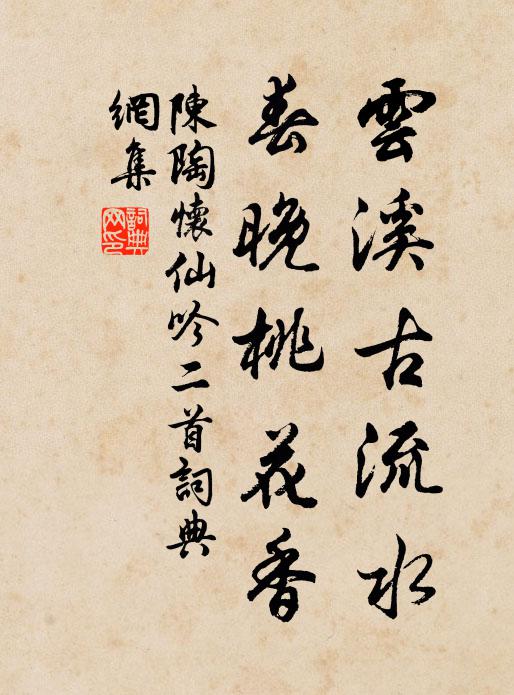 雲溪古流水
春晚桃花香
陳陶懷仙吟二首詞典
網集
詞典網印